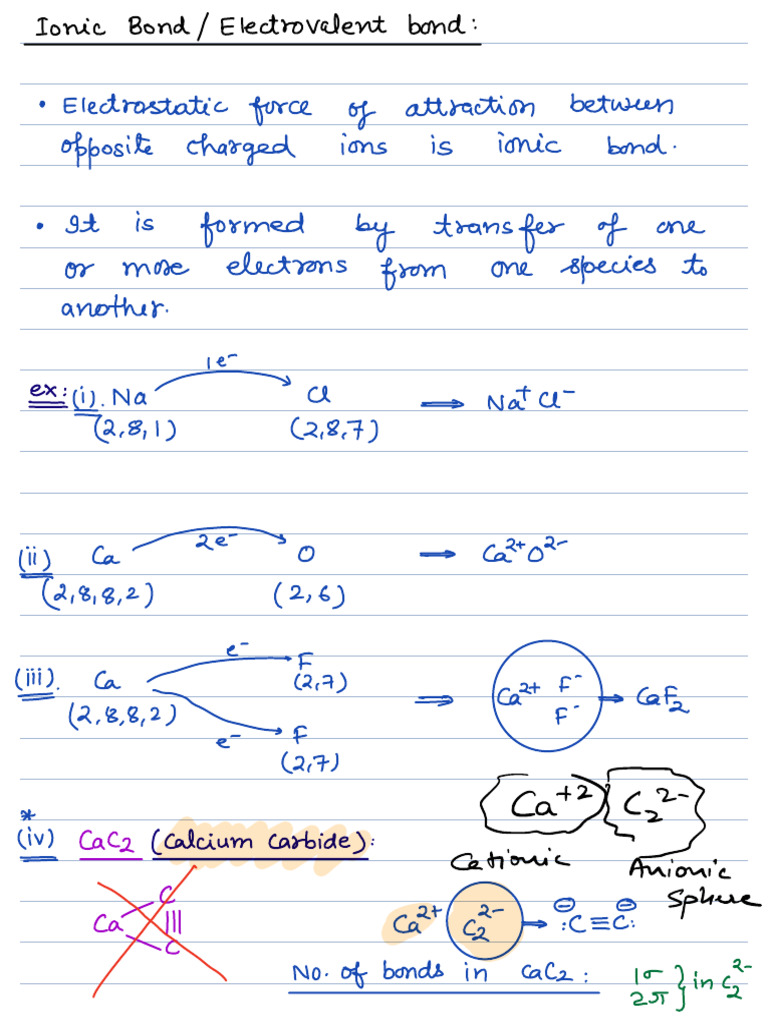 Ionic Bond / Electrovalent bond:
• Electrostatic force of attraction between
opposite charged ions is ionic bond.
• It is formed by transfer of one
or more electrons from one species to
another.
1e⁻
ex: (i). Na Cl ⟹ Na⁺ Cl⁻
(2,8,1) (2,8,7)
2e⁻
(ii) Ca O → Ca²⁺O²⁻
(2,8,8,2) (2,6)
e⁻ F
(2,7)
(iii). Ca ⟹ Ca²⁺ F⁻ F⁻ → CaF₂
(2,8,8,2)
e⁻ F
(2,7)
Ca⁺² C₂²⁻
*
(iv) CaC₂ (Calcium Carbide):
Cationic Anionic
Sphere
Ca C ||| C
Ca²⁺ C₂²⁻ → ⊖:C≡C:⊖
No. of bonds in CaC₂: 1σ 2π } in C₂²⁻